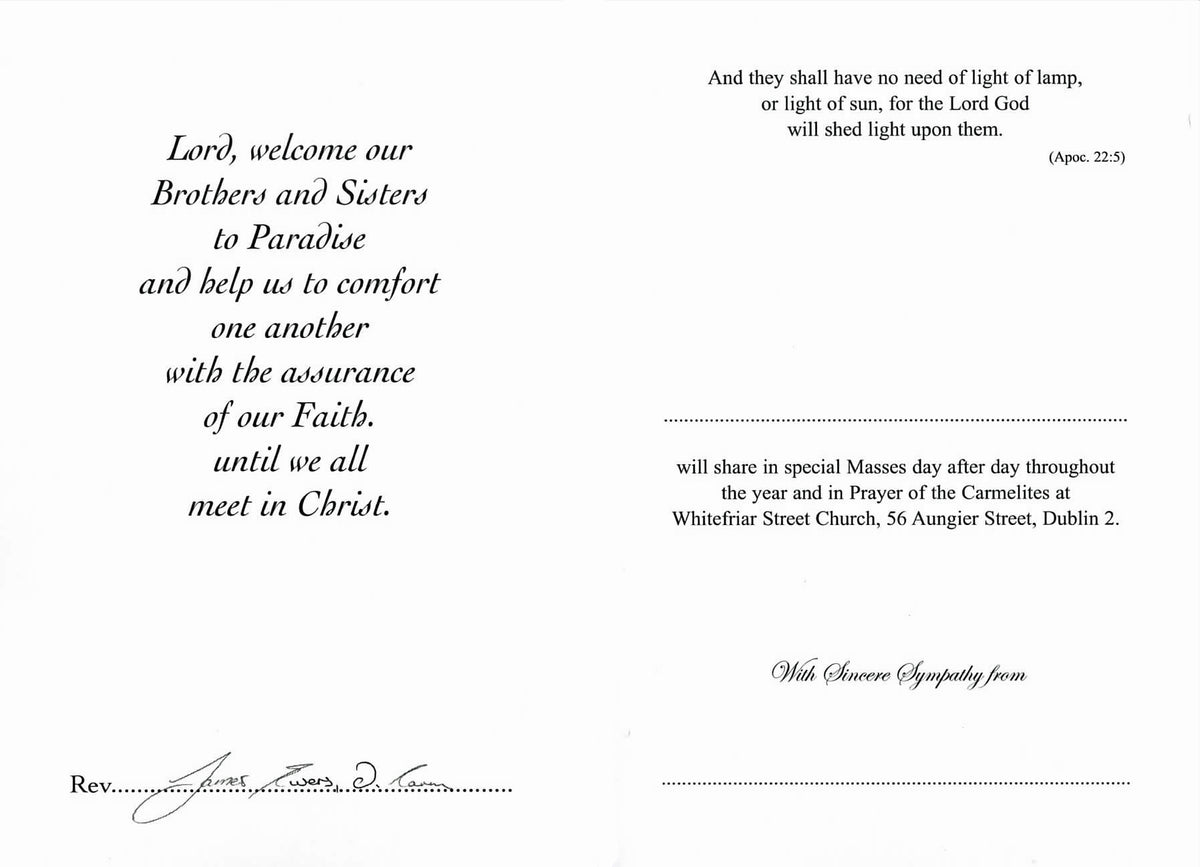 Lord, welcome our
Brothers and Sisters
to Paradise
and help us to comfort
one another
with the assurance
of our Faith.
until we all
meet in Christ.
Rev. James Ewers, O. Carm
And they shall have no need of light of lamp,
or light of sun, for the Lord God
will shed light upon them.
(Apoc. 22:5)
will share in special Masses day after day throughout
the year and in Prayer of the Carmelites at
Whitefriar Street Church, 56 Aungier Street, Dublin 2.
With Sincere Sympathy from